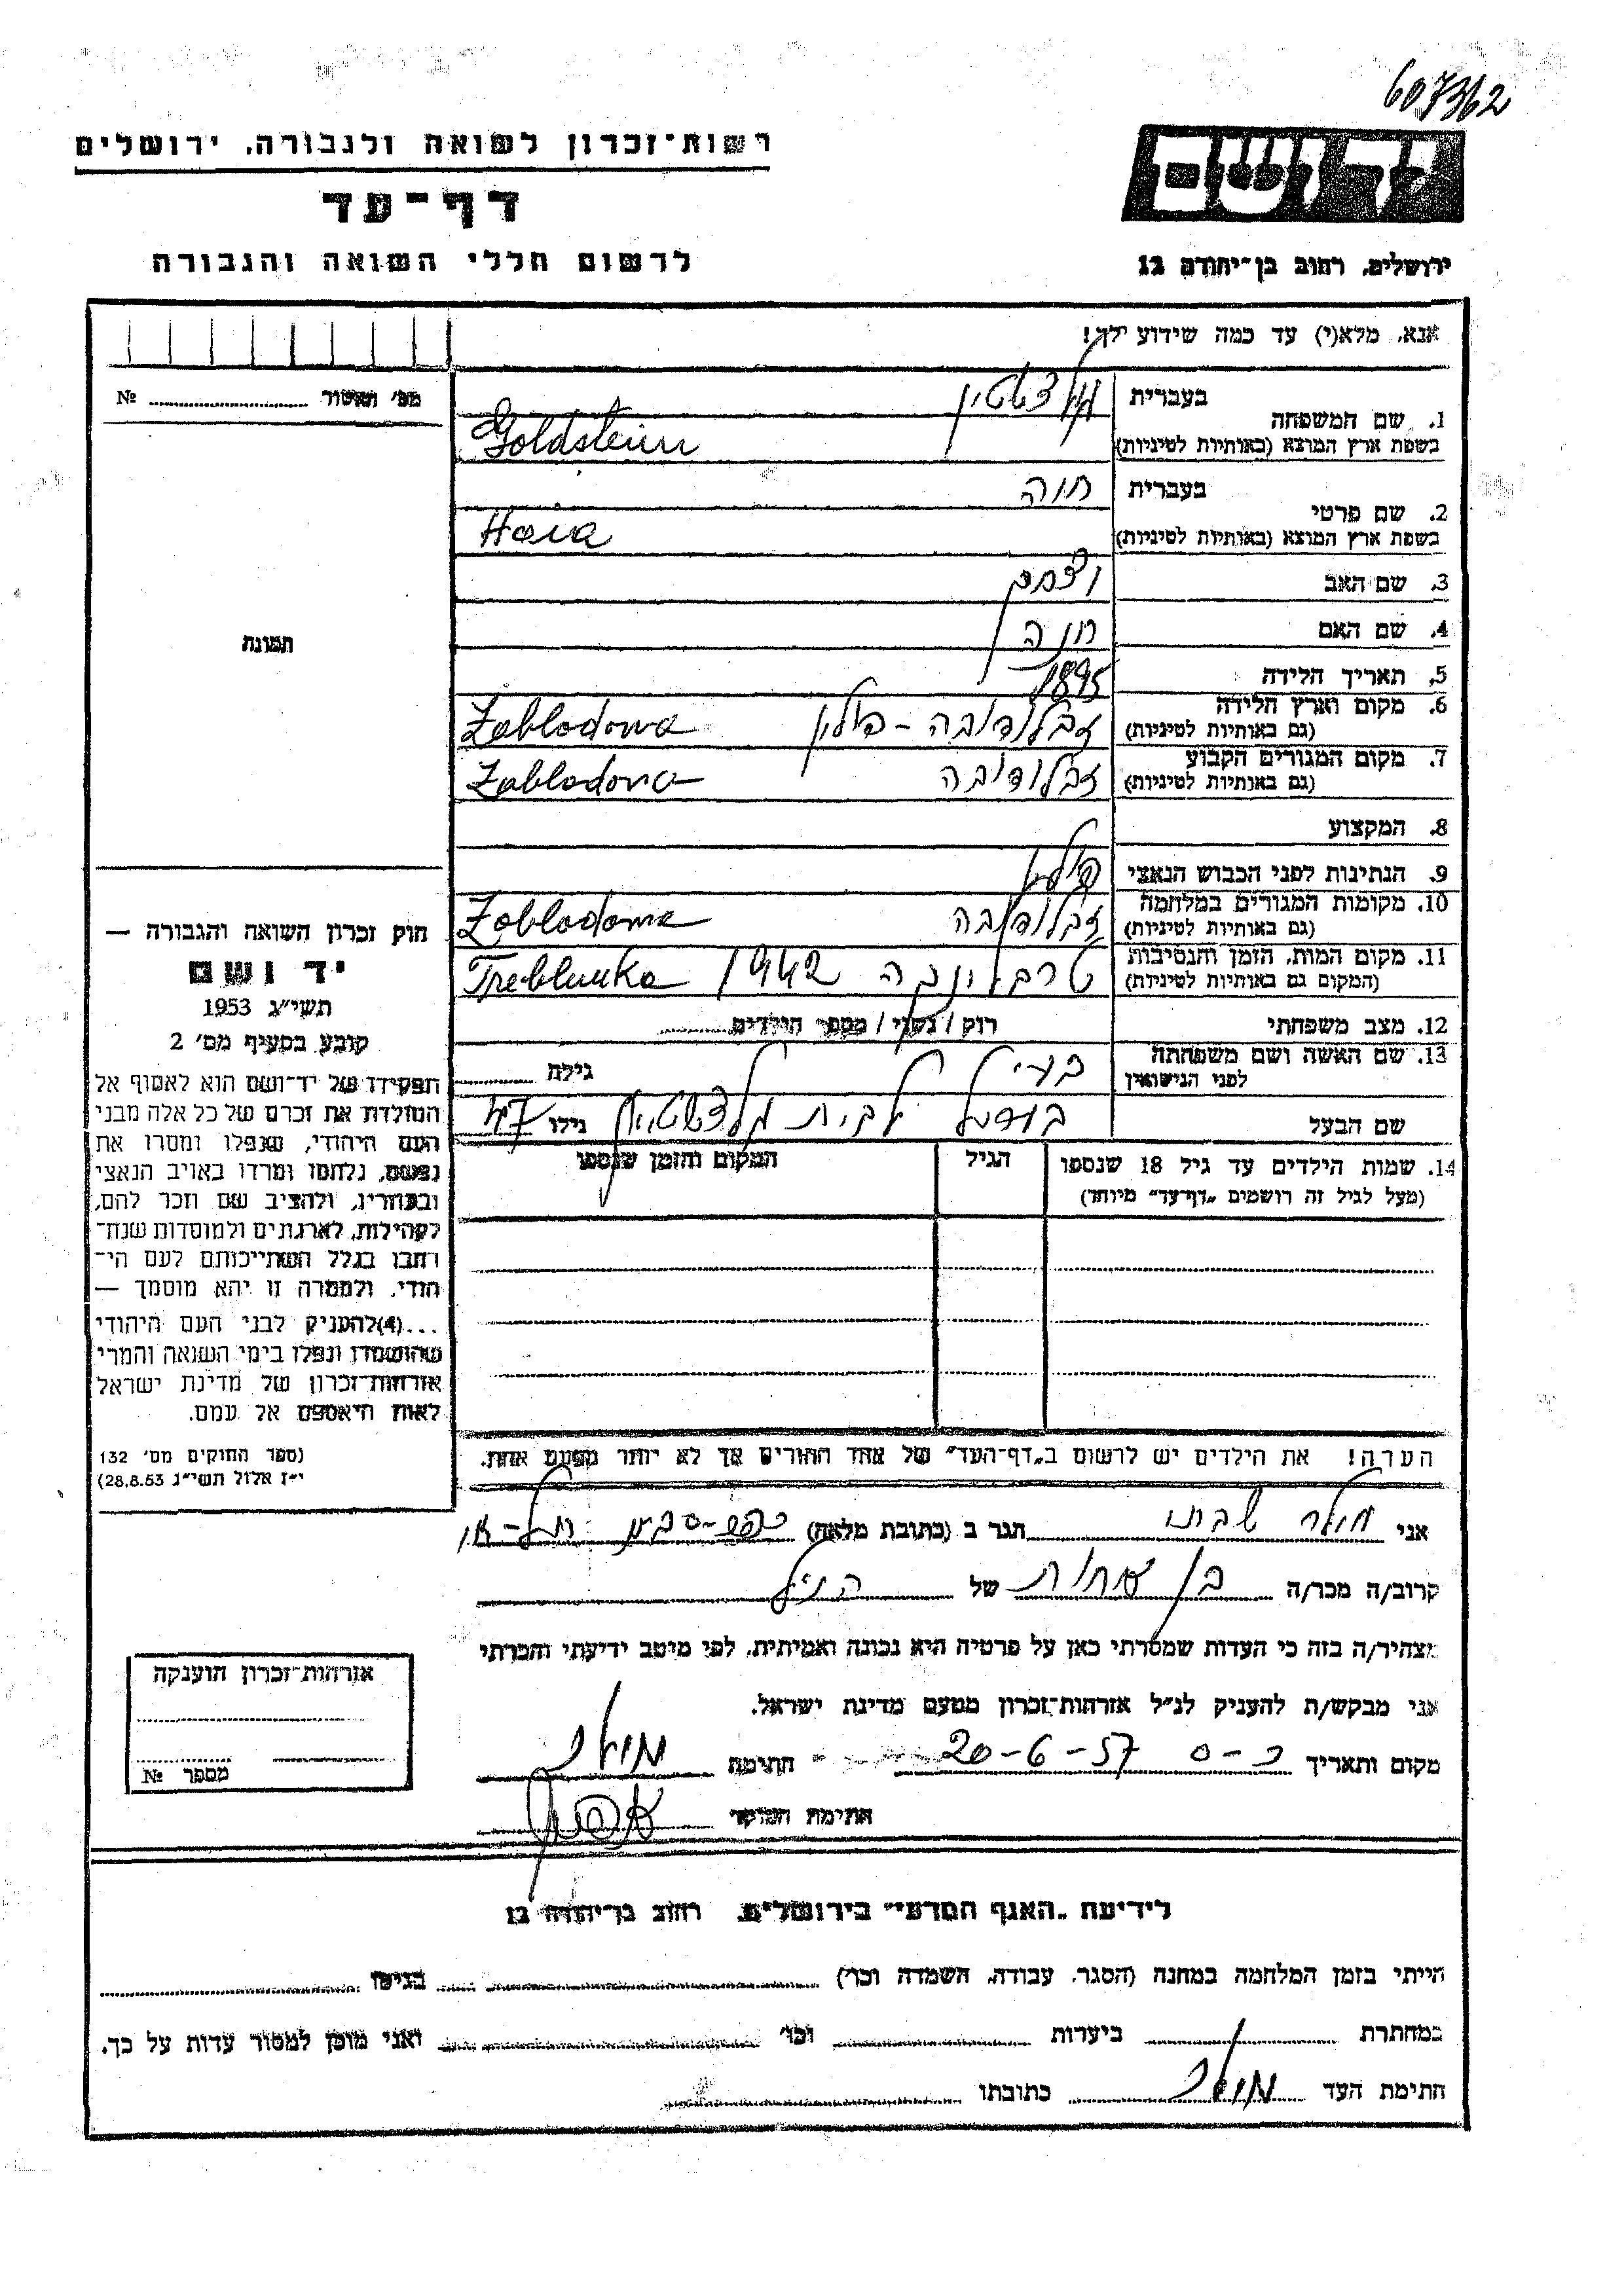 607362
רשות־זכרון לשואה ולגבורה, ירושלים
ידושם
דף־עד
לרשום חללי השואה והגבורה
ירושלים, רחוב בן־יהודה 12
אנא, מלא(י) עד כמה שידוע לך!
מס׳ ואשור № 
1. שם המשפחה
בעברית גולדשטיין
בשפת ארץ המוצא (באותיות לטיניות) Goldsteinn
2. שם פרטי
בעברית חוה
בשפת ארץ המוצא (באותיות לטיניות) Haia
3. שם האב
4. שם האם חנה
5. תאריך הלידה 1895
6. מקום וארץ הלידה זבלודובה - פולין Zablodowa
(גם באותיות לטיניות)
7. מקום המגורים הקבוע זבלודובה Zablodowa
(גם באותיות לטיניות)
8. המקצוע
9. הנתינות לפני הכבוש הנאצי
10. מקומות המגורים במלחמה זבלודובה Zoblodowa
(גם באותיות לטיניות)
11. מקום המות, הזמן והנסיבות טרבלינקה 1942 Treblinka
(המקום גם באותיות לטיניות)
12. מצב משפחתי רוק / נשוי / מספר הילדים
13. שם האשה ושם משפחתה
לפני הנישואין גילה
שם הבעל לבית גולדשטיין גילו 47
14. שמות הילדים עד גיל 18 שנספו הגיל המקום והזמן שנספו
(מעל לגיל זה רושמים „דף־עד״ מיוחד)
הערה! את הילדים יש לרשום ב„דף־העד״ של אחד ההורים אך לא יותר מפעם אחת.
תמונה
חוק זכרון השואה והגבורה —
יד ושם
תשי״ג 1953
קובע בסעיף מס׳ 2
תפקידו של יד־ושם הוא לאסוף אל
המולדת את זכרם של כל אלה מבני
העם היהודי, שנפלו ומסרו את
נפשם, נלחמו ומרדו באויב הנאצי
ובעוזריו, ולהציב שם וזכר להם,
לקהילות, לארגונים ולמוסדות שנח־
רחבו בגלל השתייכותם לעם הי־
הודי. ולמטרה זו יהא מוסמך —
...(4)להעניק לבני העם היהודי
שהושמדו ונפלו בימי השואה והמרי
אזרחות־זכרון של מדינת ישראל
לאות היאספם אל עמם.
(ספר החוקים מס׳ 132
י״ז אלול תשי״ג 28.8.53)
אני שבתי הגר ב (כתובת מלאה) כפר-סבא
קרוב/ה מכר/ה בן אחות של הנ״ל
מצהיר/ה בזה כי העדות שמסרתי כאן על פרטיה היא נכונה ואמיתית, לפי מיטב ידיעתי והכרתי
אני מבקש/ת להעניק לנ״ל אזרחות־זכרון מטעם מדינת ישראל.
מקום ותאריך כ-ס 20-6-57 חתימה
חתימת הפוקד
אזרחות־זכרון הוענקה
מספר №
לידיעת „האגף המדעי״ בירושלים, רחוב בן־יהודה 12
הייתי בזמן המלחמה במחנה (הסגר, עבודה, השמדה וכו׳) בגיטו
במחתרת ביערות וכו׳ ואני מוכן למסור עדות על כך.
חתימת העד כתובתו